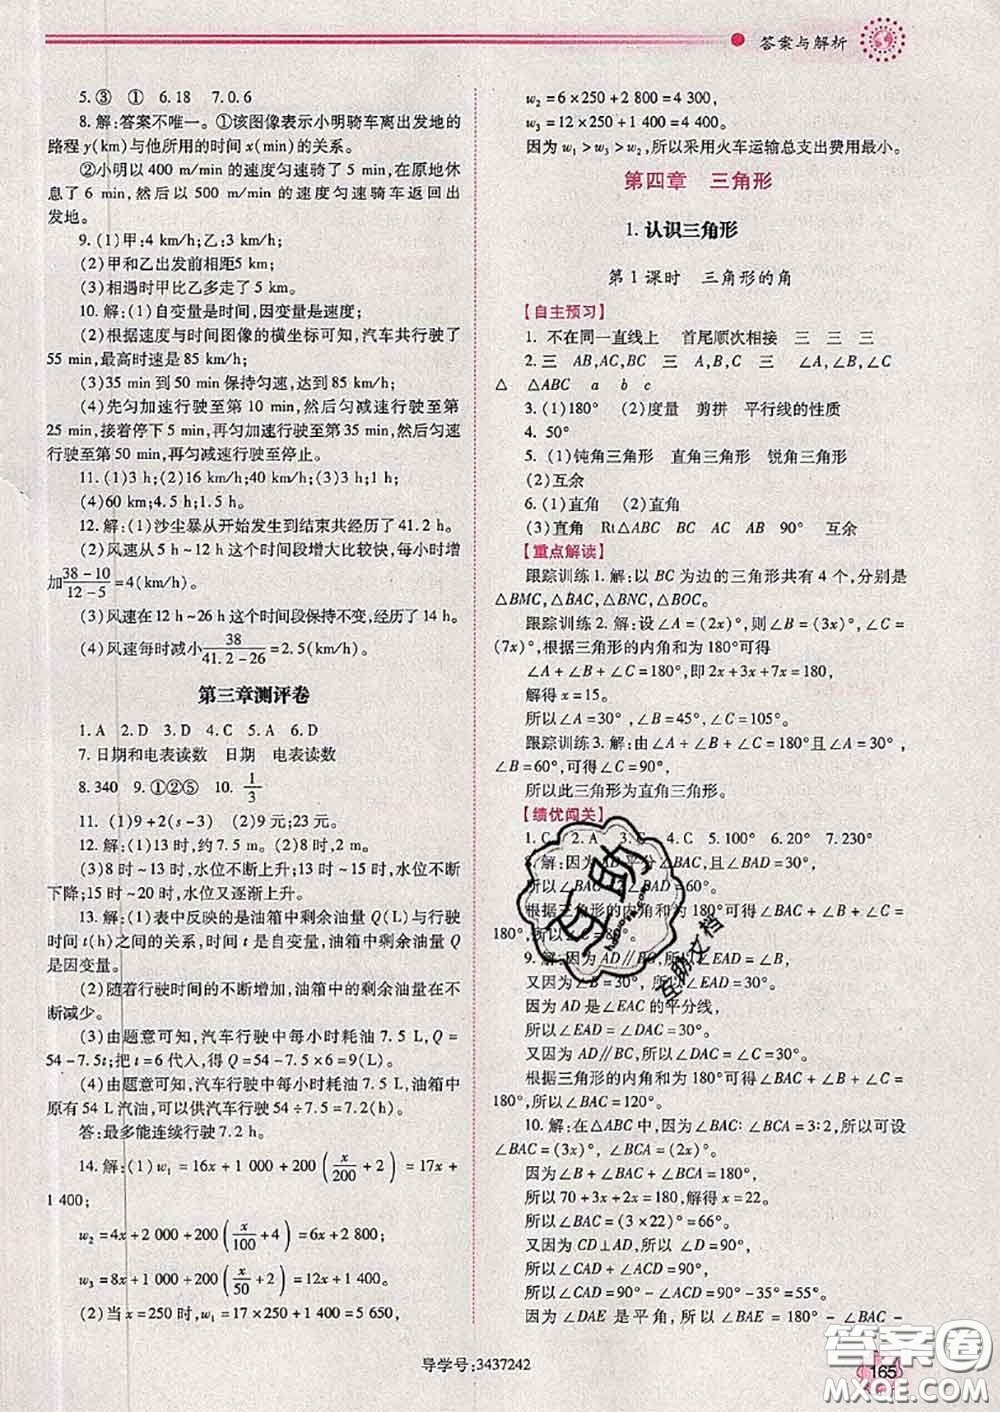 答案与解析
5.③ ① 6.18 7.0.6
8.解:答案不唯一。①该图像表示小明骑车离出发地的
路程y(km)与他所用的时间x(min)的关系。
②小明以400 m/min的速度匀速骑了5 min,在原地休
息了6 min,然后以500 m/min的速度匀速骑车返回出
发地。
9.(1)甲:4 km/h;乙:3 km/h;
(2)甲和乙出发前相距5 km;
(3)相遇时甲比乙多走了5 km。
10.解:(1)自变量是时间,因变量是速度;
(2)根据速度与时间图像的横坐标可知,汽车共行驶了
55 min,最高时速是85 km/h;
(3)35 min到50 min保持匀速,达到85 km/h;
(4)先匀加速行驶至第10 min,然后匀减速行驶至第
25 min,接着停下5 min,再匀加速行驶至第35 min,然后匀速
行驶至第50 min,再匀减速行驶至停止。
11.(1)3 h;(2)16 km/h;40 km/h;(3)3 h;1 h;
(4)60 km;4.5 h;1.5 h。
12.解:(1)沙尘暴从开始发生到结束共经历了41.2 h。
(2)风速从5 h~12 h这个时间段增大比较快,每小时增
加(38-10)/(12-5)=4(km/h)。
(3)风速在12 h~26 h这个时间段保持不变,经历了14 h。
(4)风速每时减小38/(41.2-26)=2.5(km/h)。
第三章测评卷
1.A 2.D 3.D 4.C 5.A 6.D
7.日期和电表读数 日期 电表读数
8.340 9.①②⑤ 10.1/3
11.(1)9+2(s-3) (2)9元;23元。
12.解:(1)13时,约7.5 m。(2)8时,2 m。
(3)8时~13时,水位不断上升;13时~15时,水位不断
下降;15时~20时,水位又逐渐上升。
13.解:(1)表中反映的是油箱中剩余油量Q(L)与行驶
时间t(h)之间的关系,时间t是自变量,油箱中剩余油量Q
是因变量。
(2)随着行驶时间的不断增加,油箱中的剩余油量在不
断减少。
(3)由题意可知,汽车行驶中每小时耗油7.5 L,Q=
54-7.5t;把t=6代入,得Q=54-7.5×6=9(L)。
(4)由题意可知,汽车行驶中每小时耗油7.5 L,油箱中
原有54 L汽油,可以供汽车行驶54÷7.5=7.2(h)。
答:最多能连续行驶7.2 h。
14.解:(1)w₁=16x+1 000+200(x/200+2)=17x+
1 400;
w₂=4x+2 000+200(x/100+4)=6x+2 800;
w₃=8x+1 000+200(x/50+2)=12x+1 400。
(2)当x=250时,w₁=17×250+1 400=5 650,
w₂=6×250+2 800=4 300,
w₃=12×250+1 400=4 400。
因为w₁>w₃>w₂,所以采用火车运输总支出费用最小。
第四章 三角形
1.认识三角形
第1课时 三角形的角
【自主预习】
1.不在同一直线上 首尾顺次相接 三 三 三
2.三 AB,AC,BC 三 A,B,C 三 ∠A,∠B,∠C
△ △ABC a b c
3.(1)180° (2)度量 剪拼 平行线的性质
4.50°
5.(1)钝角三角形 直角三角形 锐角三角形
(2)互余
6.(1)直角 (2)直角
(3)直角 Rt△ABC BC AC AB 90° 互余
【重点解读】
跟踪训练1.解:以BC为边的三角形共有4个,分别是
△BMC,△BAC,△BNC,△BOC。
跟踪训练2.解:设∠A=(2x)°,则∠B=(3x)°,∠C=
(7x)°,根据三角形的内角和为180°可得
∠A+∠B+∠C=180°,即2x+3x+7x=180,
解得x=15。
所以∠A=30°,∠B=45°,∠C=105°。
跟踪训练3.解:由∠A+∠B+∠C=180°且∠A=30°,
∠B=60°,可得∠C=90°。
所以此三角形为直角三角形。
【绩优闯关】
1.C 2.A 3. 4.C 5.100° 6.20° 7.230°
8.解:因为AD平分∠BAC,且∠BAD=30°,
所以∠BAC=2∠BAD=60°。
根据三角形的内角和为180°可得∠BAC+∠B+∠C=
180°,所以∠C=90°。
9.解:因为AD∥BC,所以∠EAD=∠B,
又因为∠B=30°,所以∠EAD=30°。
因为AD是∠EAC的平分线,
所以∠EAD=∠DAC=30°。
又因为AD∥BC,所以∠DAC=∠C=30°。
根据三角形的内角和为180°可得∠BAC+∠B+∠C=
180°,所以∠BAC=120°。
10.解:在△ABC中,因为∠BAC:∠BCA=3:2,所以可设
∠BAC=(3x)°,∠BCA=(2x)°。
因为∠B+∠BAC+∠BCA=180°,
所以70+3x+2x=180,解得x=22。
所以∠BAC=(3×22)°=66°。
又因为CD⊥AD,所以∠D=90°,
所以∠CAD+∠ACD=90°,
所以∠CAD=90°-∠ACD=90°-35°=55°。
因为∠DAE是平角,所以∠BAE=180°-∠BAC-
互助
互助文档
导学号:3437242
165
答案圈
MXQE.COM